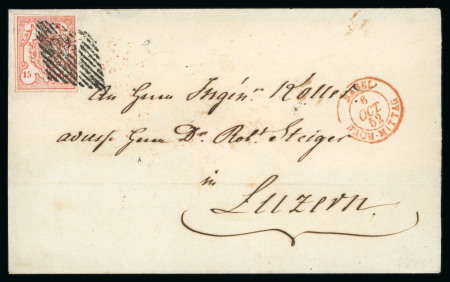 15
An Herrn Ingénr. Koller
adresse Herrn Dr. Robt. Steiger
in
Luzern.
BASEL
6
OCT
62
VORMITTAG